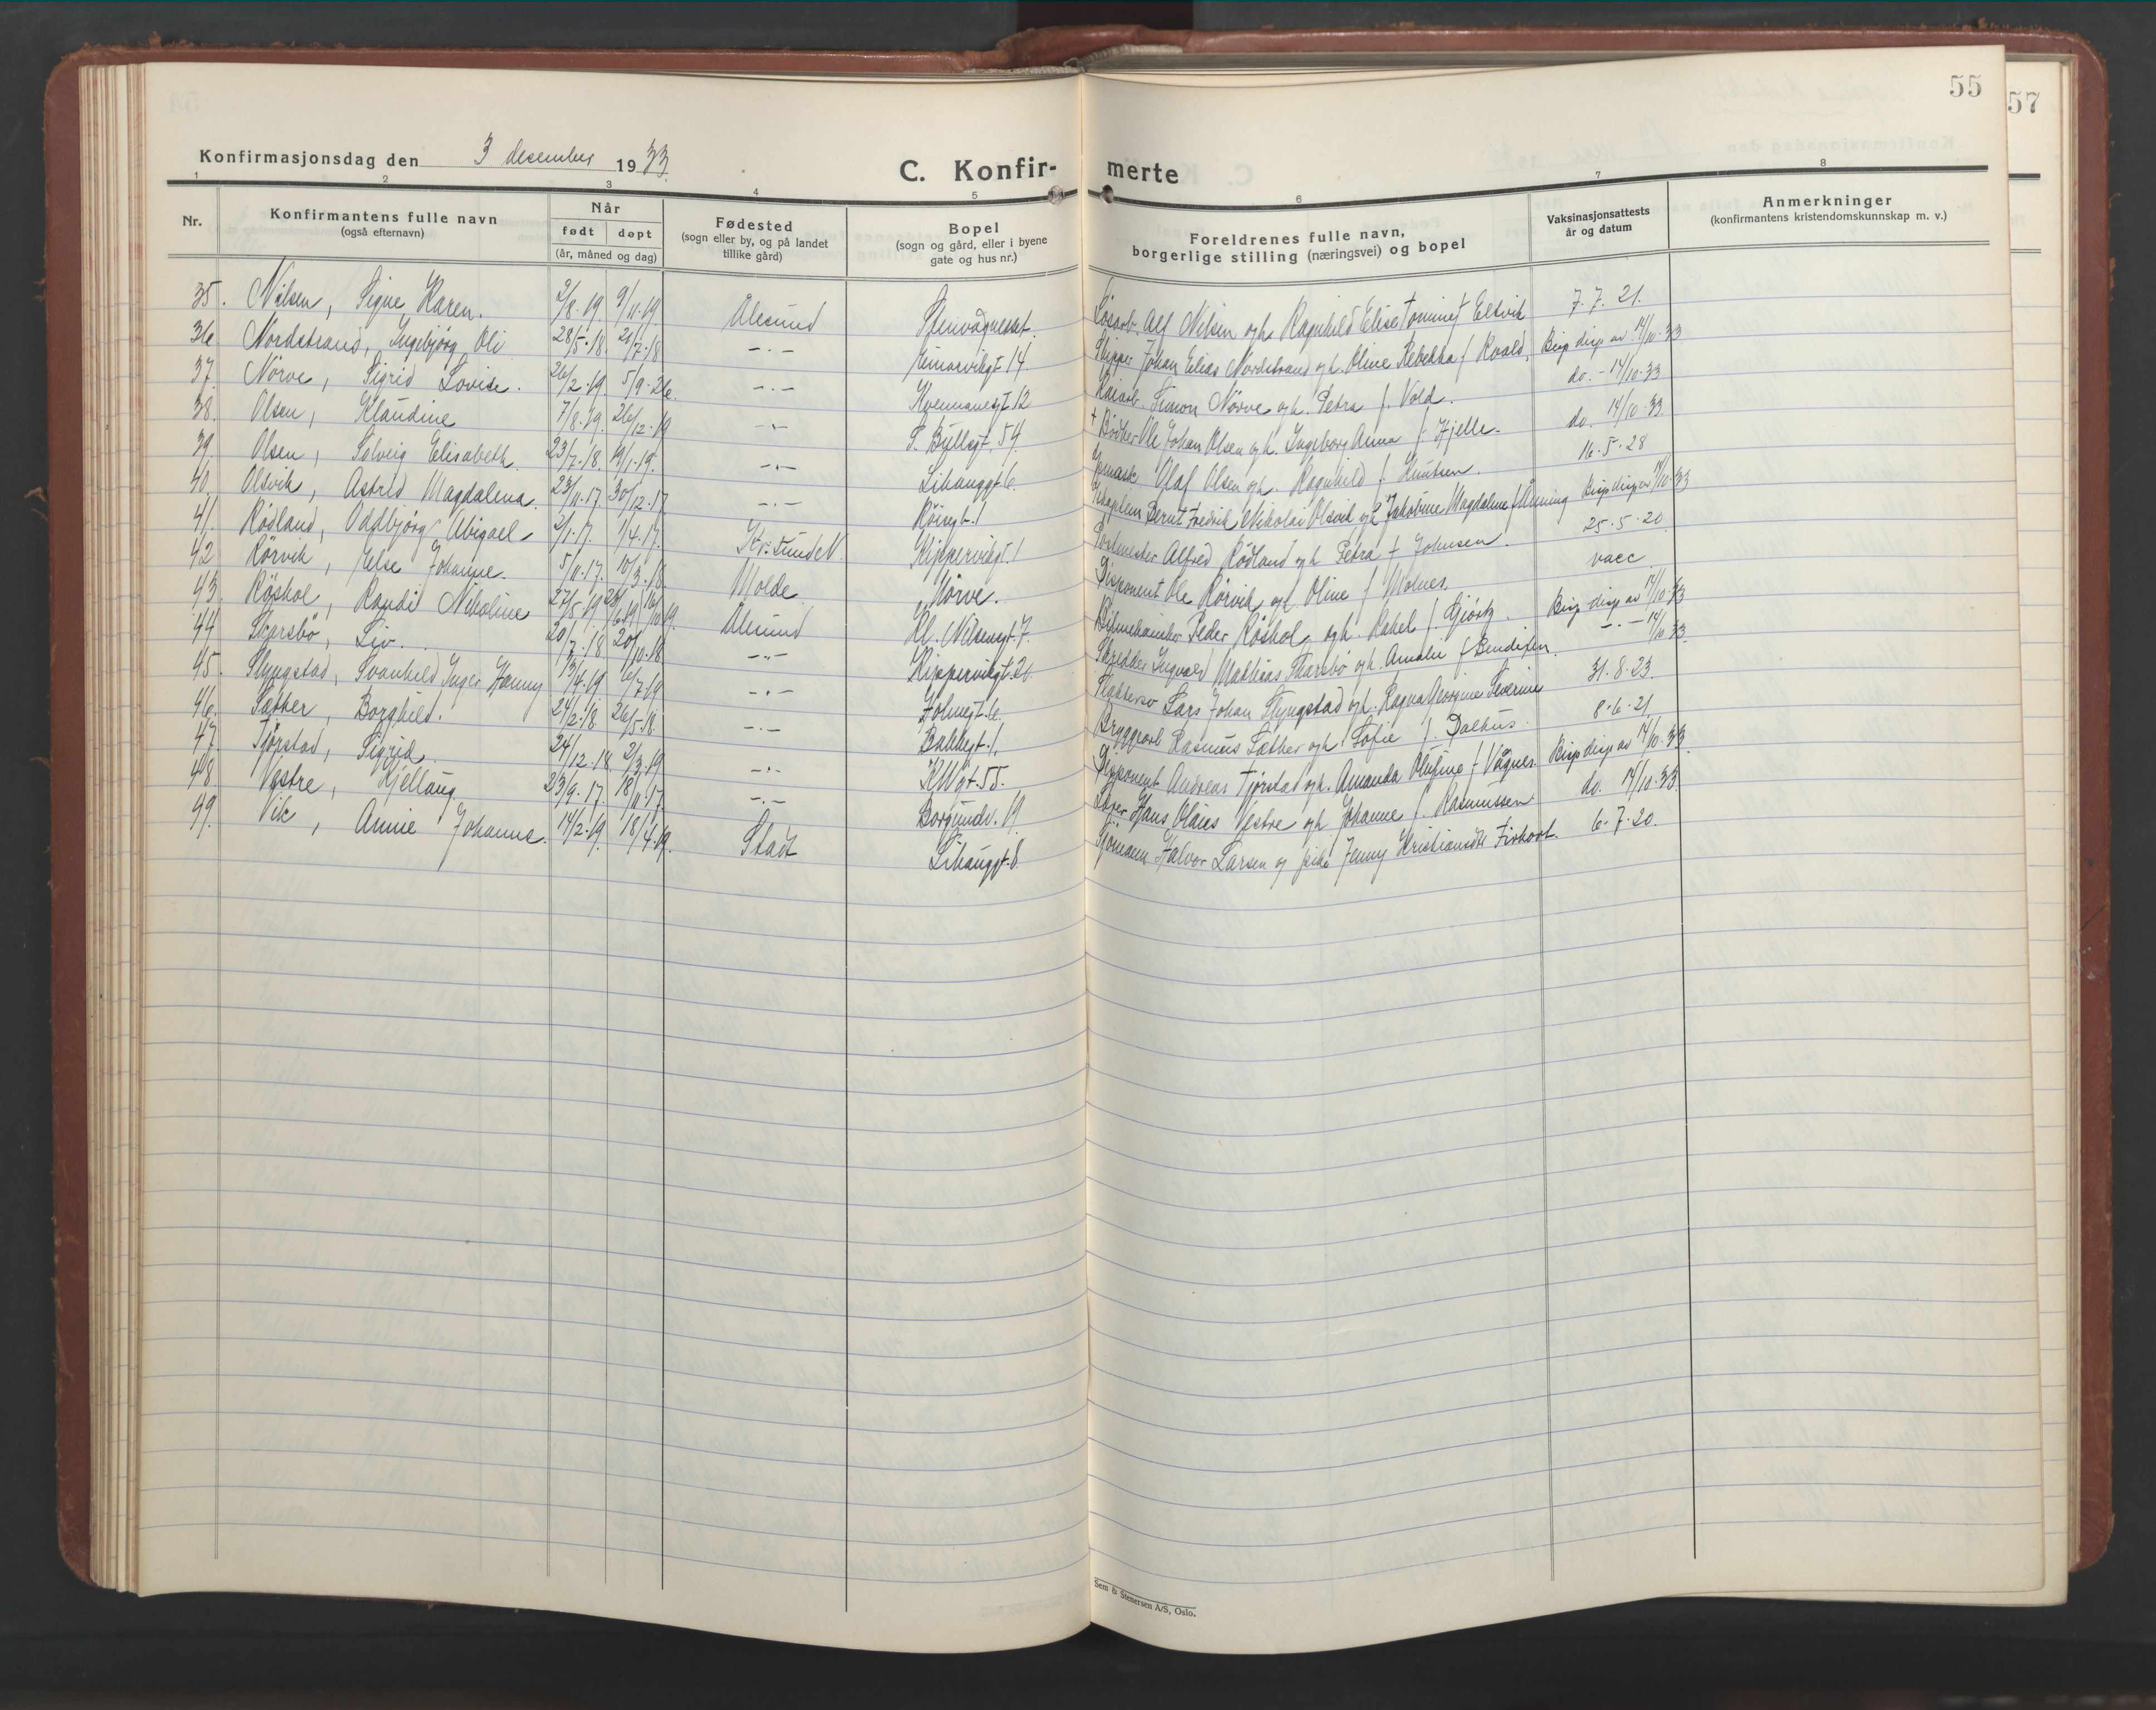 55
57
Konfirmasjonsdag den 3 desember 1933.
C. Konfirmerte
1 2 3 4 5 6 7 8
Nr. Konfirmantens fulle navn (også efternavn) Når født døpt (år, måned og dag) Fødested (sogn eller by, og på landet tillike gård) Bopel (sogn og gård, eller i byene gate og hus nr.) Foreldrenes fulle navn, borgerlige stilling (næringsvei) og bopel Vaksinasjonsattests år og datum Anmerkninger (konfirmantens kristendomskunnskap m. v.)
35. Nilsen, Signe Karen. 2/8.19. 9/11.19. Ålesund Steinvågnesset. Løsarb. Alf Nilsen og h. Ragnhild Elise f. Eltvik 7.7.21.
36 Nordstrand, Ingebjörg Oli 28/5.18. 20/7.18 -.- 14. Skipper Johan Elias Nordstrand og h. Oline Rebekka f. Kvald. Bisp disp av 14/10.33
37. Nörve, Sigrid Lovise. 26/2.19. 5/9.26. -.- 12 Kaiarb. Simon Nörve og h. Petra f. Vold. do. - 14/10.33
38. Olsen, Klaudine 7/8.19. 26/12.19 -.- O. Bullsgt. 54. † Bödker Ole Johan Olsen og h. Ingeborg Anna f. Hjelle. do. 14/10.33
39. Olsen, Solveig Elisabeth. 23/7.18. 19/1.19. -.- Lihauggt 6. Olaf Olsen og h. Ragnhild f. Knutsen. 16.5.28
40. Olsvik, Astrid Magdalena. 23/11.17 30/12.17 -.- Röisgt. 1 Bernt Fredrik Nikolai Olsvik og h. Jakobine Magdalene f. Änning Bisp disp av 14/10.33
41. Rödland, Oddbjörg Abigael 2/1.17. 1/4.17. Kr.sund N. Kippervikgt. 1 Postmester Alfred Rödland og h Petra f Johnsen. 25.5.20.
42 Rörvik, Else Johanne. 5/11.17. 10/3.18 Molde Nörve. Disponent Ole Rörvik og h. Oline f Molnes. vacc.
43. Röshol, Randi Nikoline 27/5.19 Ålesund Kl. Nilsensgt. 7. Peder Röshol og h. Rakel f. Bisp disp av 14/10.33
44 Skarsbö, Liv. 20/7.18. 20/10.18. -.- Kippervikgt. 2 Skredder Ingvald Mathias Skarsbö og h. Amalie f Bendixen. -.- 14/10.33.
45. Slyngstad, Svanhild Inger Hanny 13/4.19 6/7.19 -.- Holmegt. 6. Lars Johan Slyngstad og h. Ragna Georgine Severine 31.8.23.
46. Sæther, Borghild. 24/2.18 26/5.18. -.- Bakkegt. 1. Bryggearb Rasmus Sæther og h. Sofie f. Dalhus. 8.6.21.
47. Tjörstad, Sigrid. 24/12.18. 2/3.19 -.- K.Wgt. 55. Disponent Andreas Tjörstad og h. Amanda Olufine f Vågnes. Bisp disp av 14/10.33.
48. Vestre, Kjellaug 23/9.17. 18/11.17. -.- Borgundv. 19 Hans Olaus Vestre og h Johanne f. Rasmussen. do. 14/10.33.
49. Vik, Annie Johanna. 14/2.19. 18/4.19. Stadt Lihauggt. 8. Sjömann Halvor Larsen og pike Jenny Kristiansdtr 6.7.20.
Sem & Stenersen A/S, Oslo.